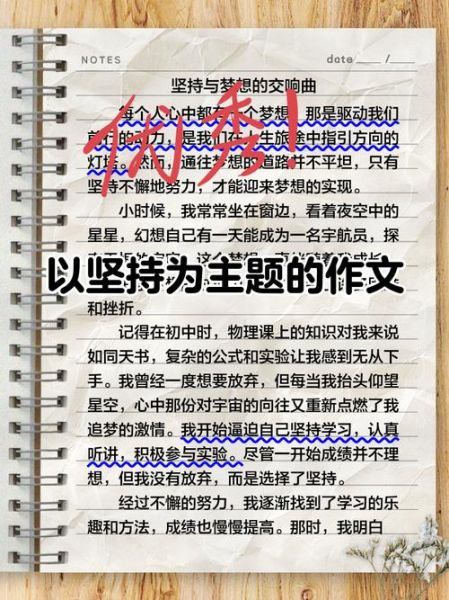 NOTES
date ____ /____
坚持与梦想的交响曲
每个人心中都有一个梦想，那是驱动我们
前行的动力，是我们在人生旅途中指引方向的
灯塔。然而，通往梦想的道路并不平坦，只有
坚持不懈地努力，才能迎来梦想的实现。
优秀！
小时候，我常常坐在窗边，看着夜空中的
星星，幻想自己有一天能成为一名宇航员，探
以坚持为主题的作文
和挫折。
记得在初中时，物理课上的知识对我来说
如同天书，复杂的公式和实验让我感到无从下
手。我曾经一度想要放弃，但每当我抬头仰望
星空，心中那份对宇宙的向往又重新点燃了我
追梦的激情。我开始逼迫自己坚持学习，认真
听讲，积极参与实验。尽管一开始成绩并不理
想，但我没有放弃，而是选择了坚持。
经过不懈的努力，我逐渐找到了学习的乐
趣和方法，成绩也慢慢提高。那时，我明白